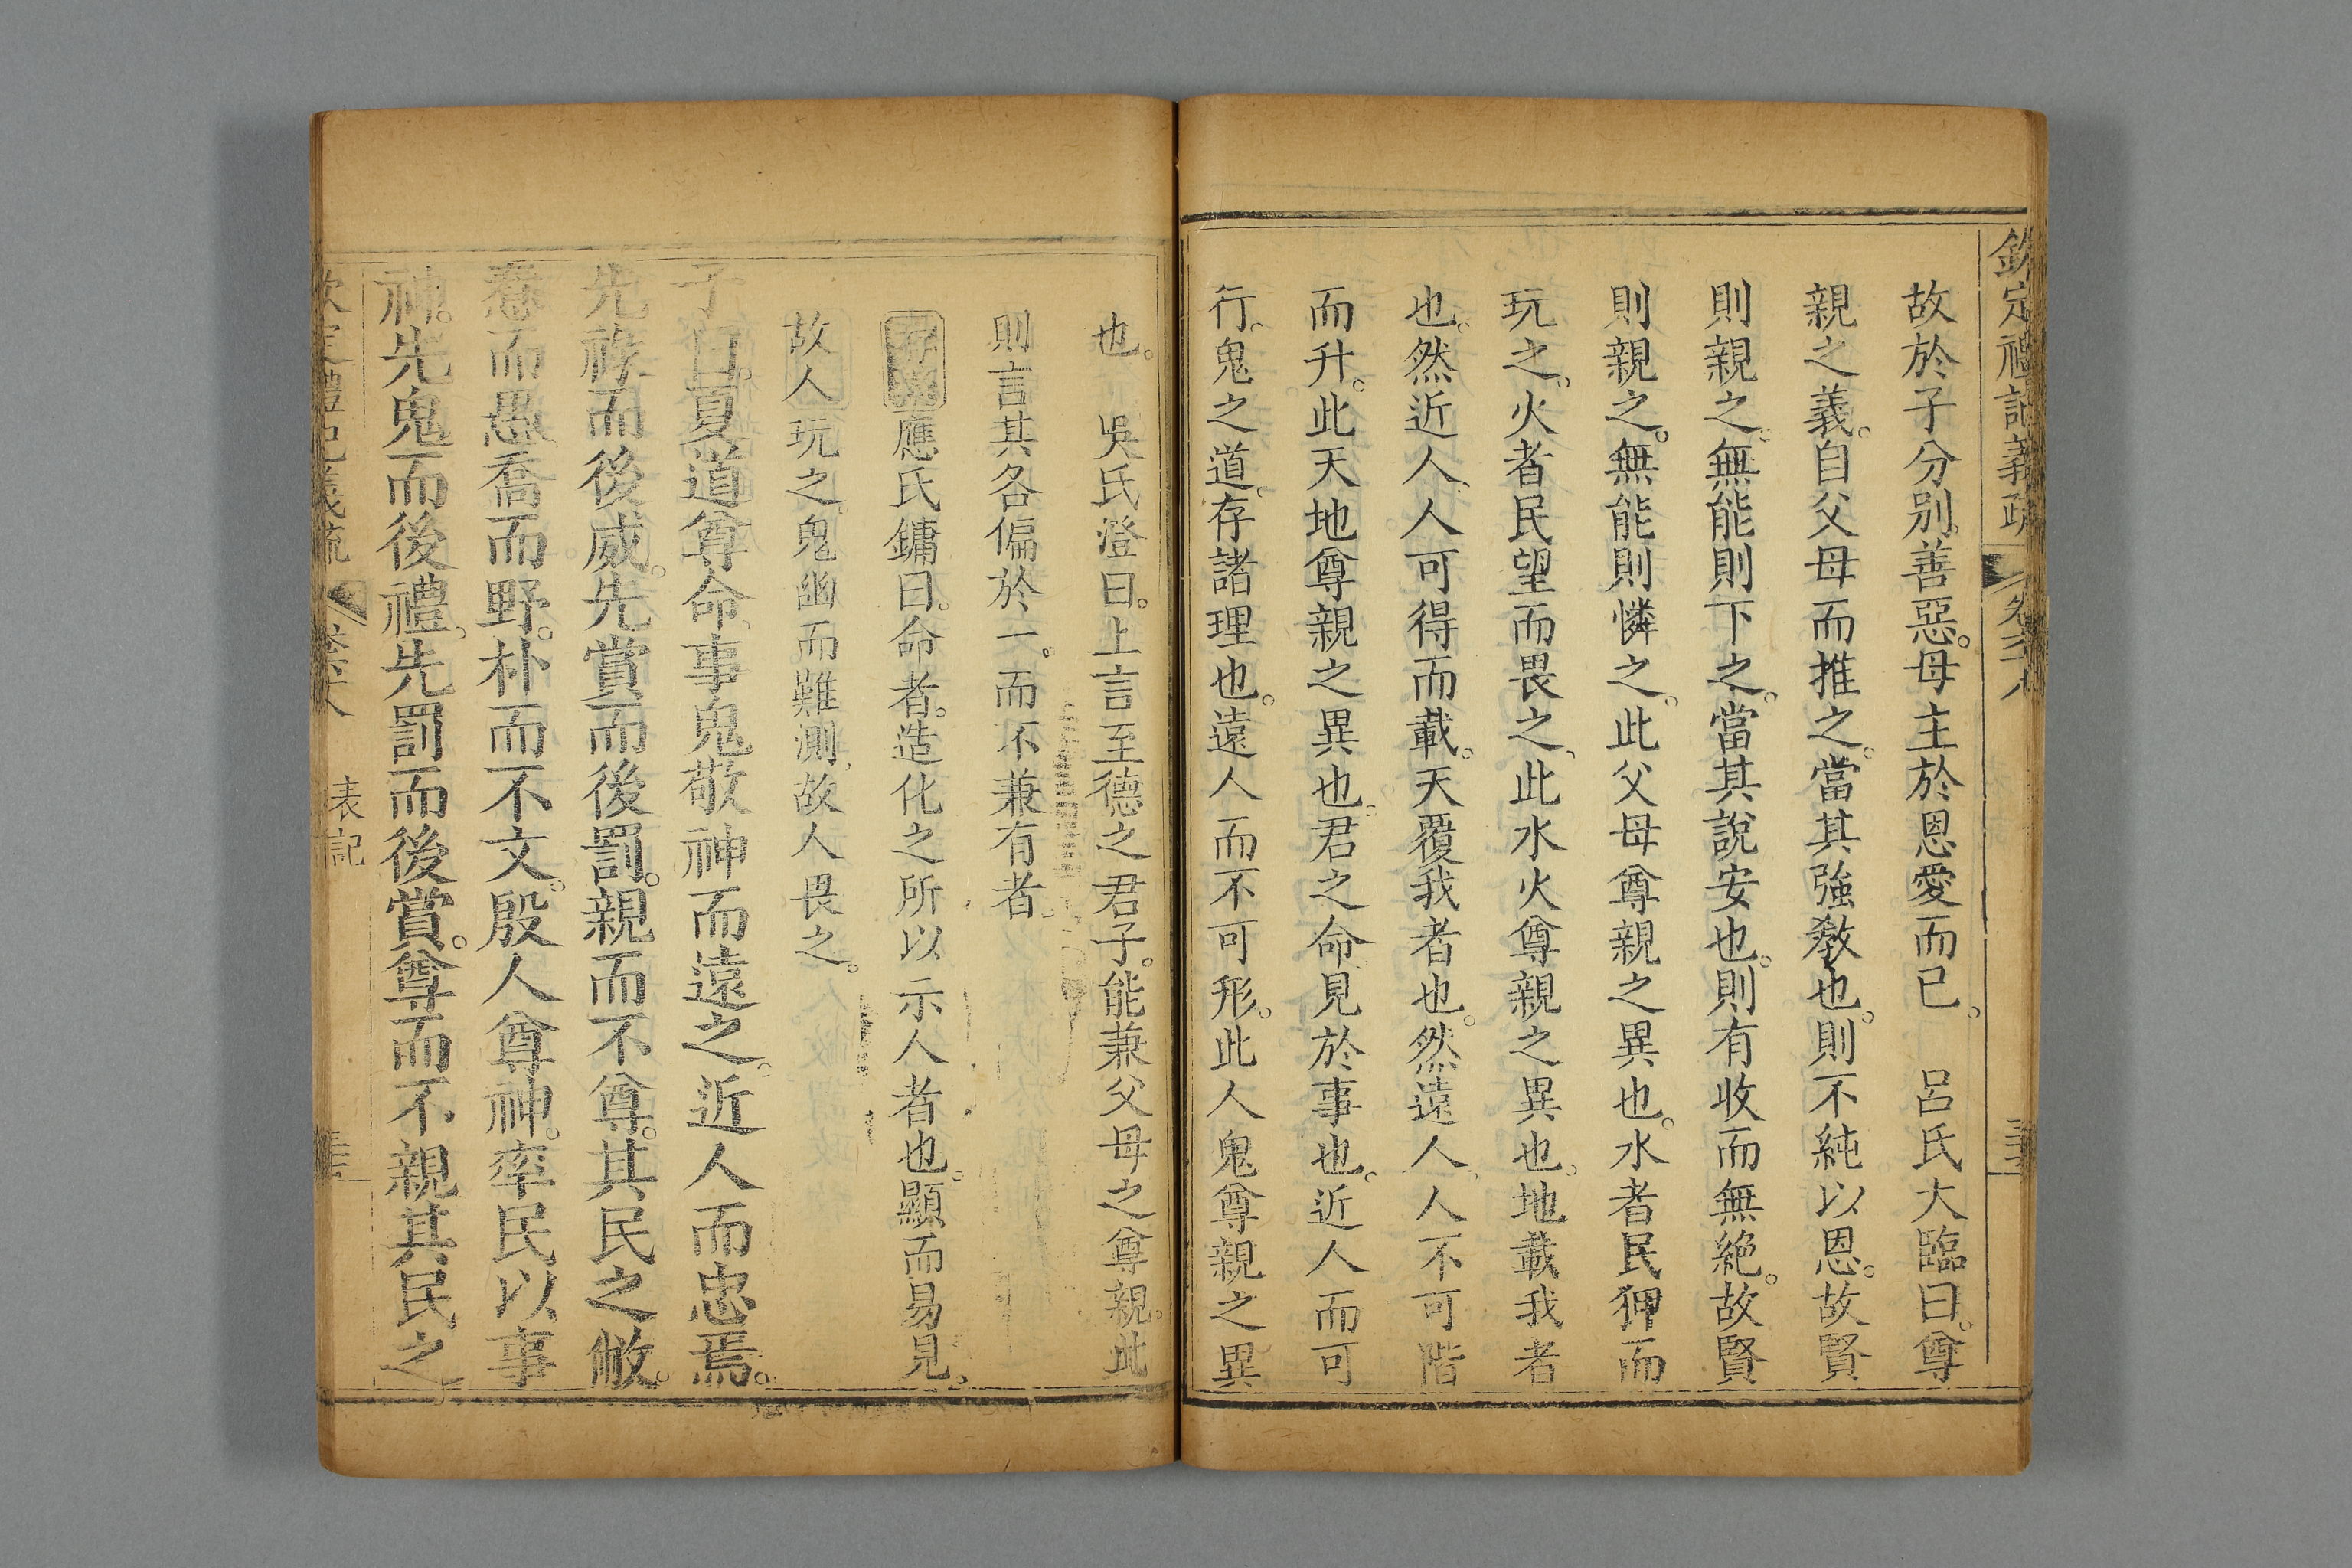 欽定禮記義疏 卷六十八
故於子分別善惡。母主於恩愛而已。 呂氏大臨曰。尊
親之義。自父母而推之。當其強敎也。則不純以恩。故賢
則親之。無能則下之。當其說安也。則有收而無絶。故賢
則親之。無能則憐之。此父母尊親之異也。水者民狎而
玩之。火者民望而畏之、此水火尊親之異也。地載我者
也。然近人、人可得而載。天覆我者也。然遠人、人不可階
而升。此天地尊親之異也。君之命見於事也。近人而可
行。鬼之道、存諸理也。遠人而不可形。此人鬼尊親之異
也。 吳氏澄曰。上言至德之君子。能兼父母之尊親。此
則言其各偏於一。而不兼有者
存異應氏鏞曰。命者。造化之所以示人者也。顯而易見。
故人玩之、鬼幽而難測、故人畏之。
子曰。夏道尊命、事鬼敬神而遠之。近人而忠焉。
先祿而後威。先賞而後罰。親而不尊。其民之敝。
惷而愚、喬而野。朴而不文。殷人尊神。率民以事
神。先鬼而後禮、先罰而後賞。尊而不親、其民之
欽定禮記義疏 卷六十八 表記